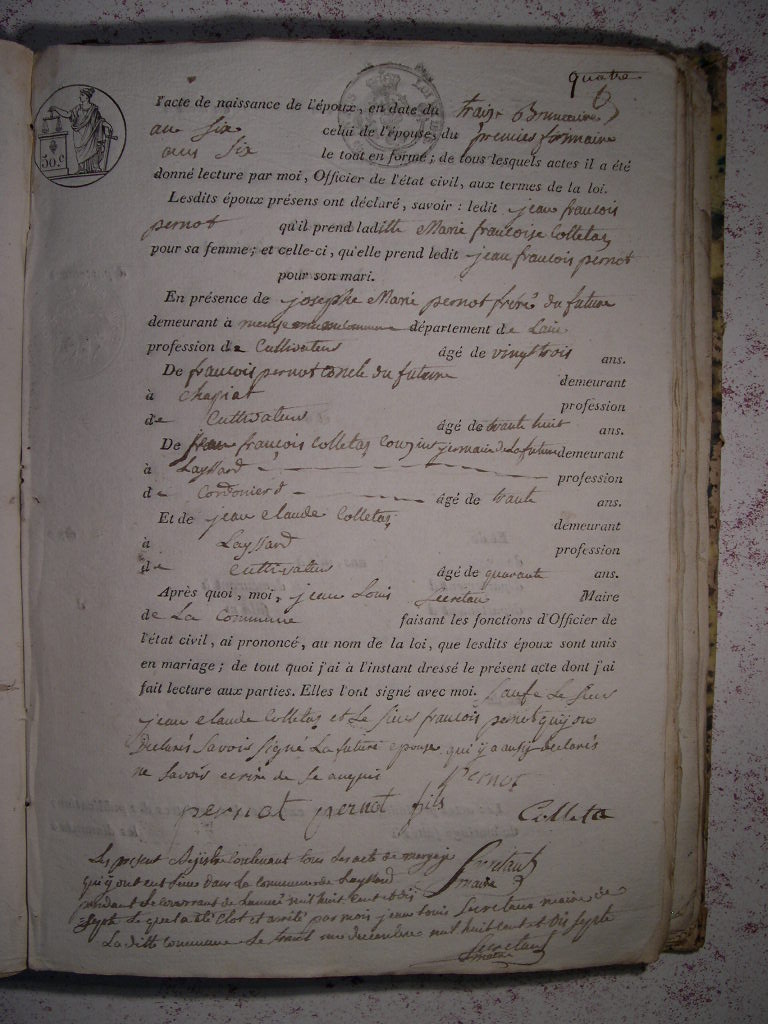 quatre
30.c
l'acte de naissance de l'époux, en date du traize Brumaire
an Six celui de l'épouse, du premier frimaire
ans Six le tout en forme; de tous lesquels actes il a été
donné lecture par moi, Officier de l'état civil, aux termes de la loi.
Lesdits époux présens ont déclaré, savoir : ledit jean francois
pernot qu'il prend laditte Marie francoise Colletaz
pour sa femme; et celle-ci, qu'elle prend ledit jean francois pernot
pour son mari.
En présence de josephe Marie pernot frere du future
demeurant à commune département de Lain
profession de Cultivateur âgé de vingt trois ans.
De francois pernot loncle du future demeurant
à Chapiat profession
de Cultivateur âgé de trante huit ans.
De françois Colletaz Couzins jermain de La future demeurant
à Layssard profession
de Cordonier âgé de trante ans.
Et de jean claude Colletaz demeurant
à Layssard profession
de cultivateur âgé de quarante ans.
Après quoi, moi, jean Louis Secretan Maire
de La Commune faisant les fonctions d'Officier de
l'état civil, ai prononcé, au nom de la loi, que lesdits époux sont unis
en mariage; de tout quoi j'ai à l'instant dressé le présent acte dont j'ai
fait lecture aux parties. Elles l'ont signé avec moi. Saufe Le sieur
jean claude Colletaz et Le sieur francois pernot qui on
Declarés Savoir signé La future epouse qui y a aussi declarés
ne savoir ecrire de ce Pernot
pernot pernot fils Colleta
Les present Rejistre Contenant tous Les acte de mariaje
qui y ont eut Lieux dans la commune de Layssard Secretan
pendant de Courrant de L'année mil huit Cent et dis maire
Sept Le quel a été Clot et arrêté par mois jean Louis Secretan maire de
La ditte Commune Le trante un decembre mil huit Cent et Dis Septe
Secretan
maire